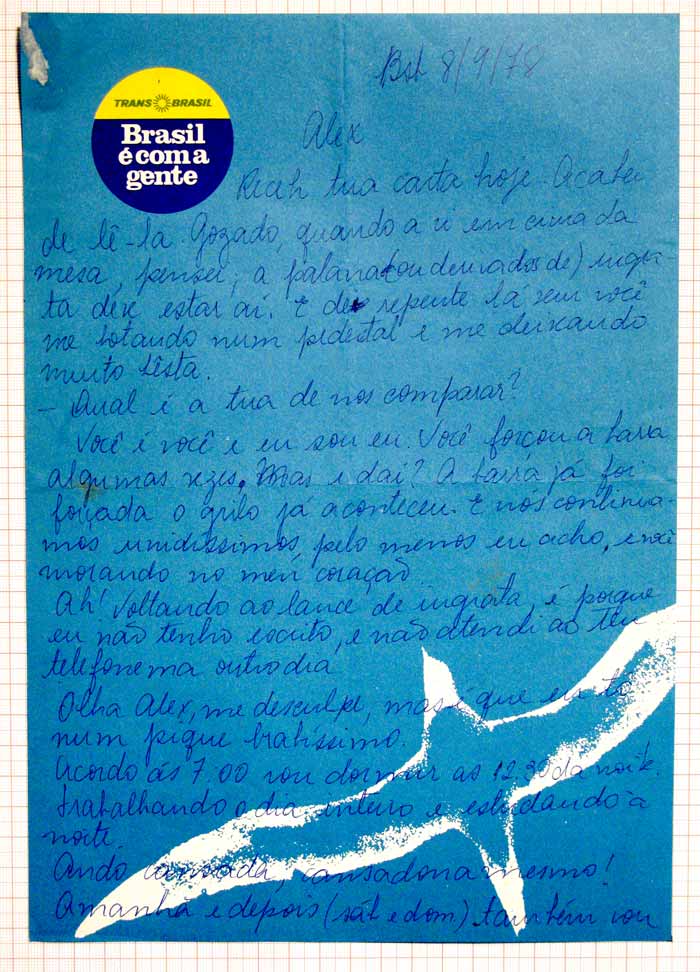 Bsb 8/9/78
TRANSBRASIL
Brasil
é com a
gente
Alex
Recebi tua carta hoje. Acabei
de lê-la. Gozado, quando a vi em cima da
mesa, pensei, a palavra (ou derivados de) ingra-
ta deve estar aí. E de repente lá vem você
me botando num pedestal e me deixando
muito bêsta.
- Qual é a tua de nos comparar?
Você é você e eu sou eu. Você forçou a barra
algumas vezes. Mas e daí? A barra já foi
forçada o grilo já aconteceu. E nós continua-
mos unidíssimos, pelo menos eu acho, e você
morando no meu coração.
Ah! Voltando ao lance de ingrata, é porque
eu não tenho escrito, e não atendi ao teu
telefonema outro dia
Olha Alex, me desculpe, mas é que eu tô
num pique bratíssimo.
Acordo às 7.00 vou dormir as 12.30 da noite.
trabalhando o dia inteiro e estudando à
noite.
Ando cansada, cansadona mesmo!
Amanhã e depois (sáb e dom) também vou